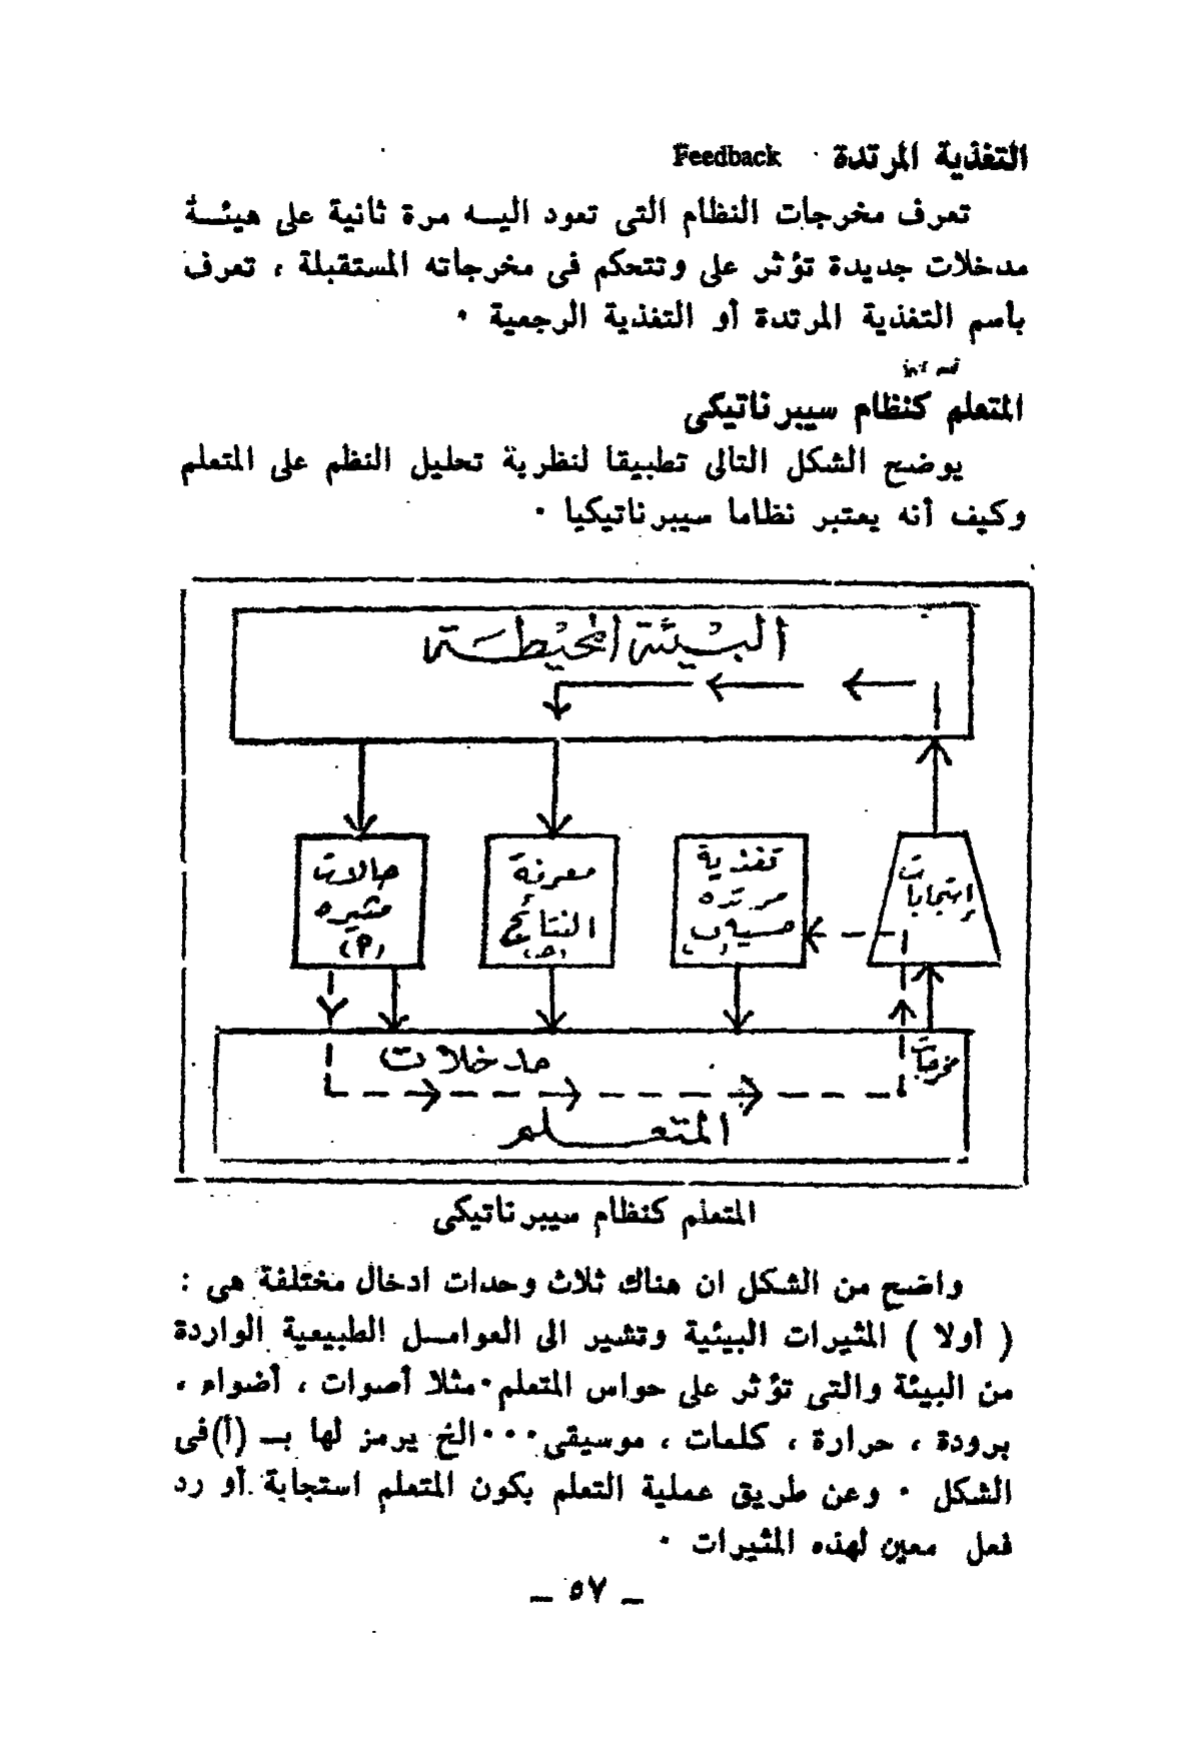 التغذية المرتدة Feedback
تعرف مخرجات النظام التى تعود اليه مرة ثانية على هيئة
مدخلات جديدة تؤثر على وتتحكم فى مخرجاته المستقبلة ، تعرف
بأسم التغذية المرتدة أو التغذية الرجعية ٠
المتعلم كنظام سيبرناتيكى
يوضح الشكل التالى تطبيقا لنظرية تحليل النظم على المتعلم
وكيف أنه يعتبر نظاما سيبرناتيكيا ٠
البيئة المحيطة
إستجابات
تغذية
مرتده
حسيه (ب)
معرفة
النتائج
(ج)
حالات
مثيره
(أ)
مخرجات
مدخلات
المتعلم
المتعلم كنظام سيبرناتيكى
واضح من الشكل ان هناك ثلاث وحدات ادخال مختلفة هى :
( أولا ) المثيرات البيئية وتشير الى العوامل الطبيعية الواردة
من البيئة والتى تؤثر على حواس المتعلم ٠ مثلا أصوات ، أضواء ،
برودة ، حرارة ، كلمات ، موسيقى ٠٠٠ الخ يرمز لها بـ (أ) فى
الشكل ٠ وعن طريق عملية التعلم يكون المتعلم استجابة أو رد
فعل معين لهذه المثيرات ٠
ـ ٥٧ ـ